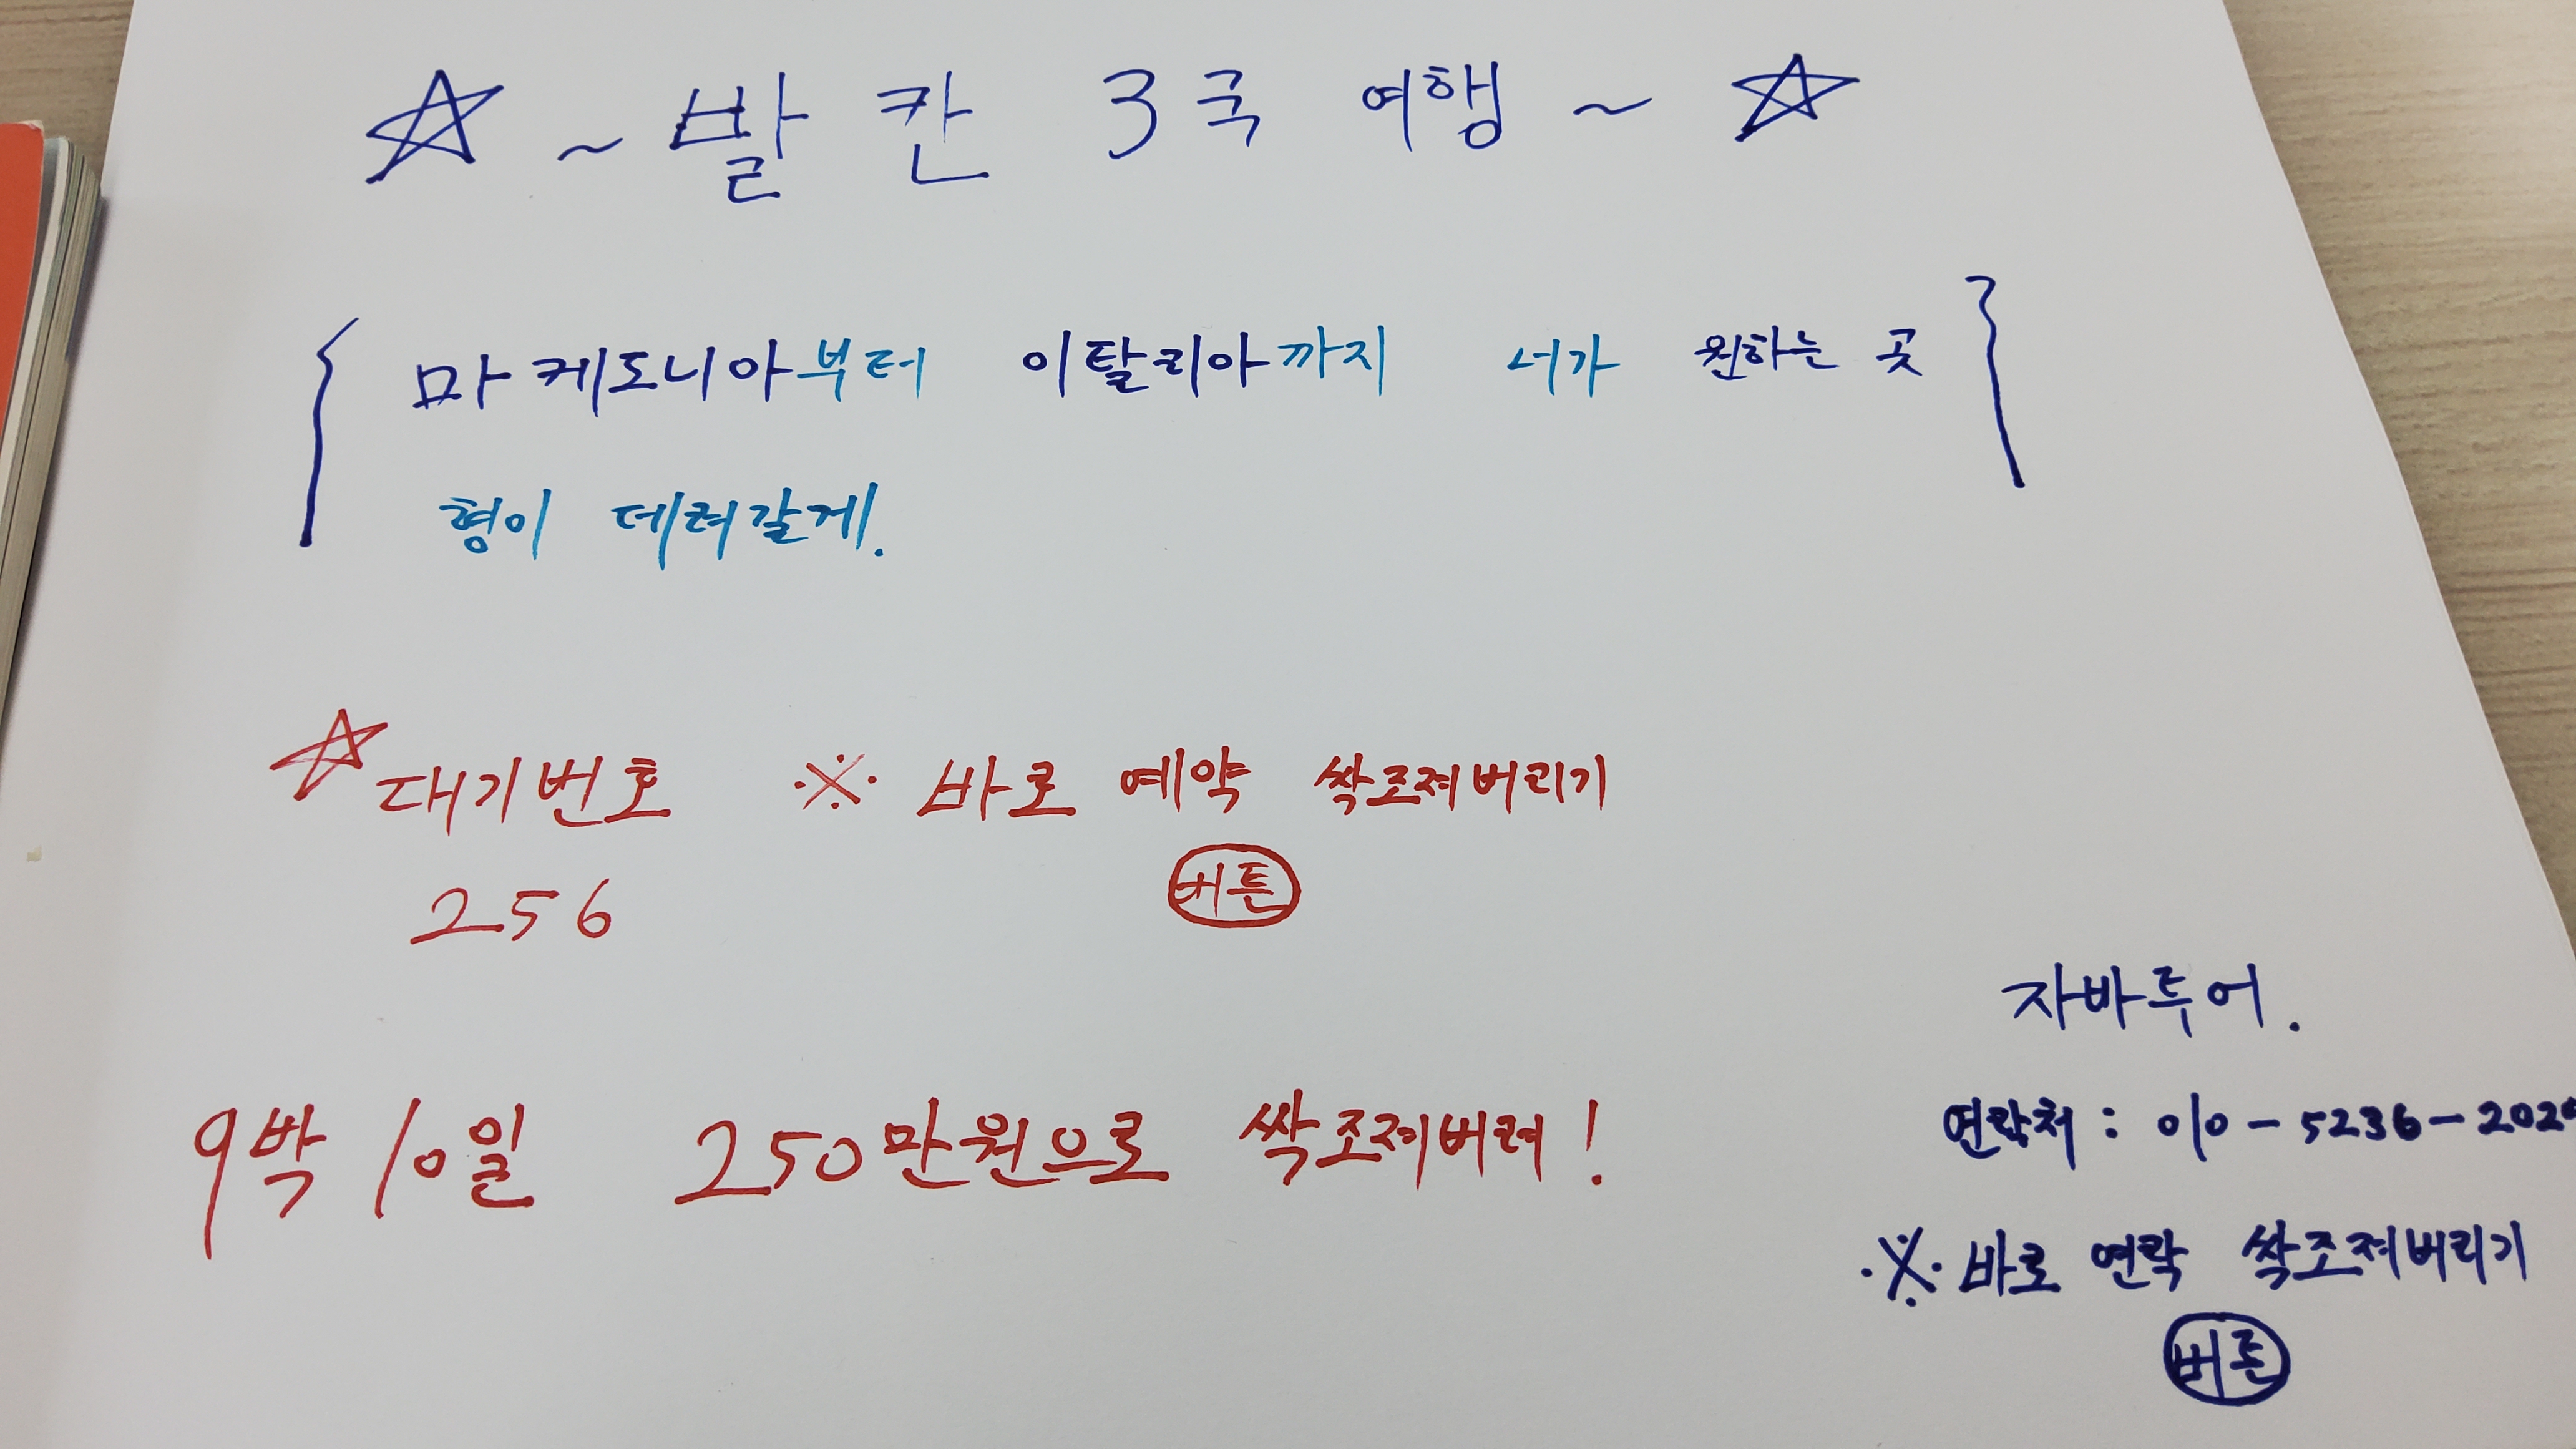 ☆ ~ 발칸 3국 여행 ~ ☆
{ 마케도니아부터 이탈리아까지 너가 원하는 곳 }
형이 데려갈게.
☆ 대기번호 ※ 바로 예약 싹조져버리기
256 버튼
자바투어.
연락처 : 010-5236-202
9박 10일 250만원으로 싹조져버려!
※ 바로 연락 싹조져버리기
버튼